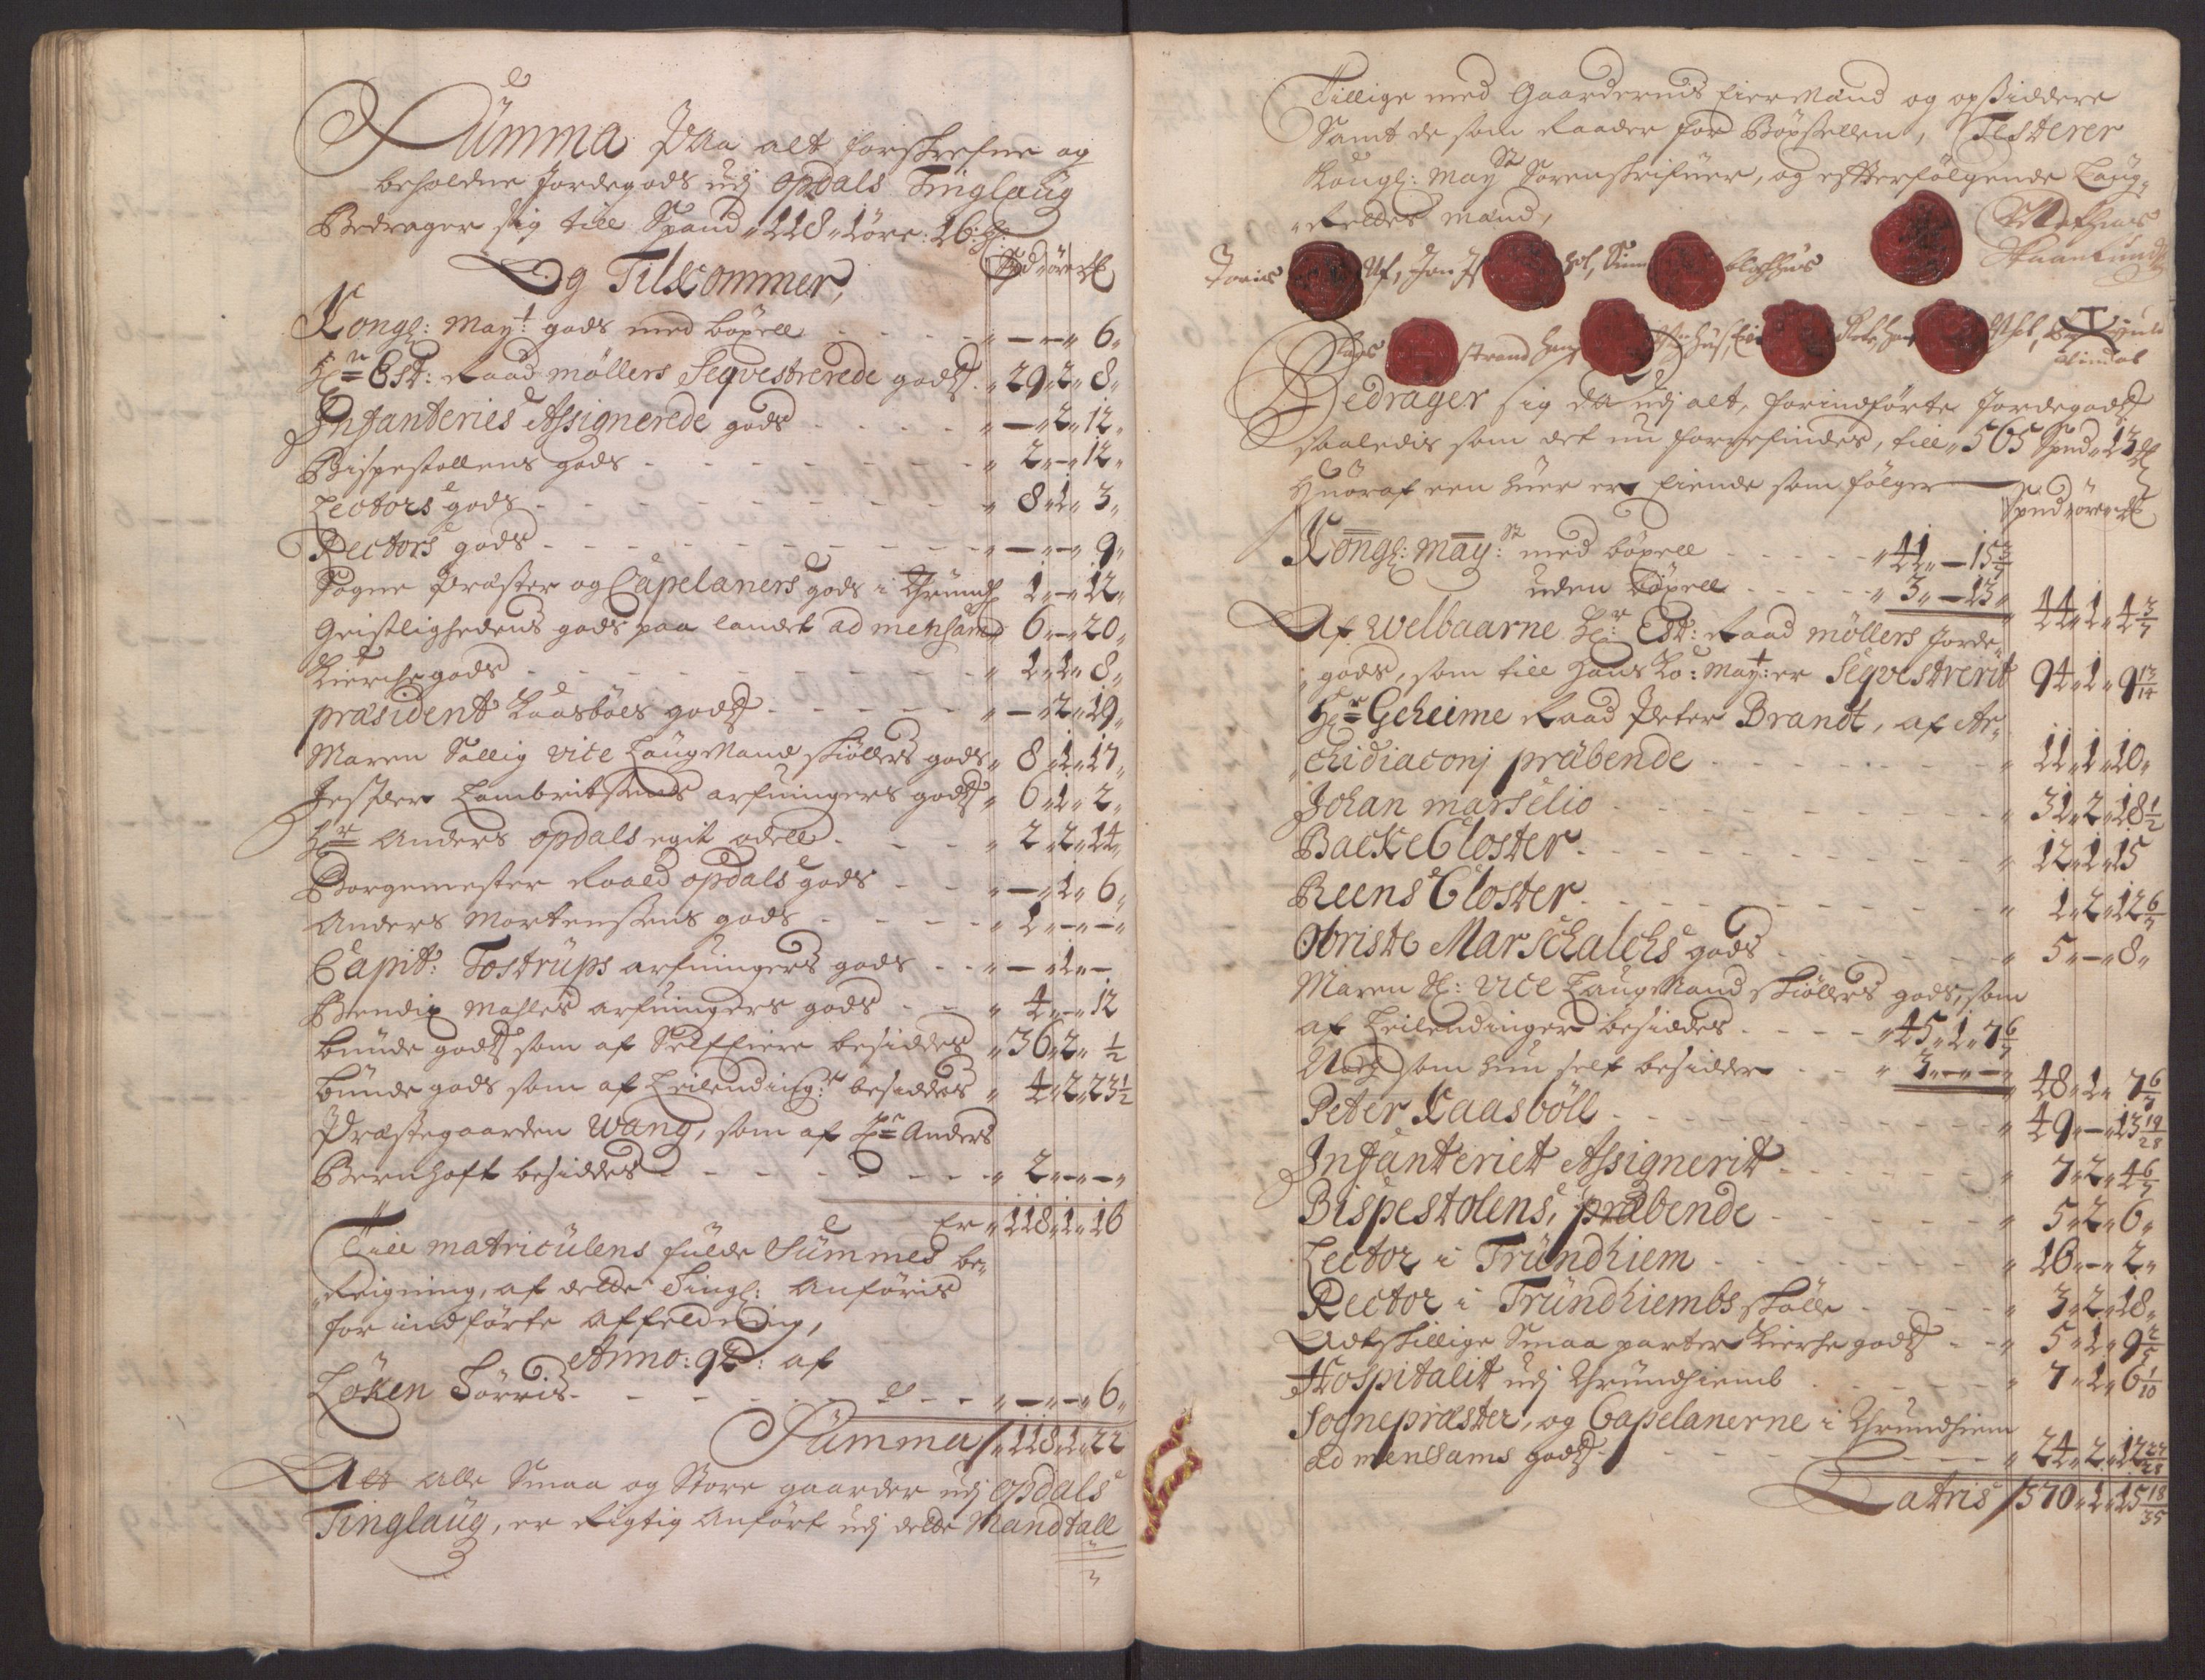 Summa Paa alt forskrefne og
beholdne Jordegods udj Opdals Tinglaug
Bedrager sig till Spand 118 1 öre: 16:
Og Tilkommer,
Spd öre
Kongl: May:t gods med böxell - - - - - 6
Hr: Est: Raad möllers Seqvestrerede gods 29 2 8
Infanteries Assignerede gods - 2 12
Bispestollens gods 2 - 12
Lectors gods 8 1 3
Rectors gods - - 9
Sogne Præster og Capelaners gods i Thrundh 1 - 12
Geistlighedens gods paa landet ad mensam 6 - 20
Kierchegods 1 1 8
præsident Kaasböls gods - 2 19
Maren Sallig vice Laugmand skiöllers gods 8 1 17
Jesper Lambritsens arfuingers gods 6 1 2
Hr: Anders Opdals egit odell 2 2 14
Borgemester Roald Opdals gods - 1 6
Anders Mortensens gods 1 - -
Capit: Tostrups arfuingers gods - 1 -
Bendix Mahles arfuingers gods 4 - 12
bunde gods som af Selfeiere besiddes 36 2 ½
bunde gods som af Leilending: besiddes 4 2 23½
Præstegaarden Wang, som af Hr: Anders
Bernhoft besiddes 2 - -
Er 118 1 16
Till matriculens fulde Summes be-
Reigning, af dette Tingl: Anföris
for indförte Affelding,
Anno: 92: af
Löken Sörris - - 6
Summa 118 1 22
Att Alle Smaa og Store gaarder udj Opdals
Tinglaug, er Rigtig Anfört udj dette Mandtall
Tillige med Gaardernes Eiermænd og opsiddere
Samt de som Raader for Böxsellen, Testerer
Kongl: May:st Sorenskrifuer, og effterfölgende Laug-
Rettes mænd,
Bedrager sig da udj alt, forindförte Jordegods
saaledis som det nu forrefindes, till 565 Spnd 13
Huoraf een huer er Eiende som fölger
Spnd öre
Kongl: May:st med böxell 41 - 15 3/7
uden böxell 3 - 13
44 1 4 3/7
Af Welbaarne Hr: Est: Raad möllers Jorde-
gods, som till hans Ko: May:t er Seqvestrerit 94 1 9 13/14
Hr: Geheime Raad Peter Brandt, af Ar-
chidiaconj præbende 11 1 10
Johan marselio 31 2 18½
Backe Closter 12 1 15
Reens Closter 1 2 12 6/7
Obriste Marschalchs gods 5 - 8
Maren Sl: vice Laugmand skiöllers gods, som
af Leilendinger besiddes 45 1 7 6/7
Noch som hun self besidder 3 - -
48 1 7 6/7
Peter Kaasböll 49 - 13 19/28
Infanteriet Assignerit 7 2 4 6/7
Bispestolens, præbende 5 2 6
Lector i Trundhiem 16 - 2
Rector i Trundhiembs skolle 3 2 18
Adtskillige Smaa parter kierche gods 5 1 9 2/5
Hospitalit udj Thrundhiemb 7 1 6 1/10
Sognepræster, og Capelanerne i Thrundhiem
ad mensams gods 24 2 12 27/28
Latris 370 1 15 18/35